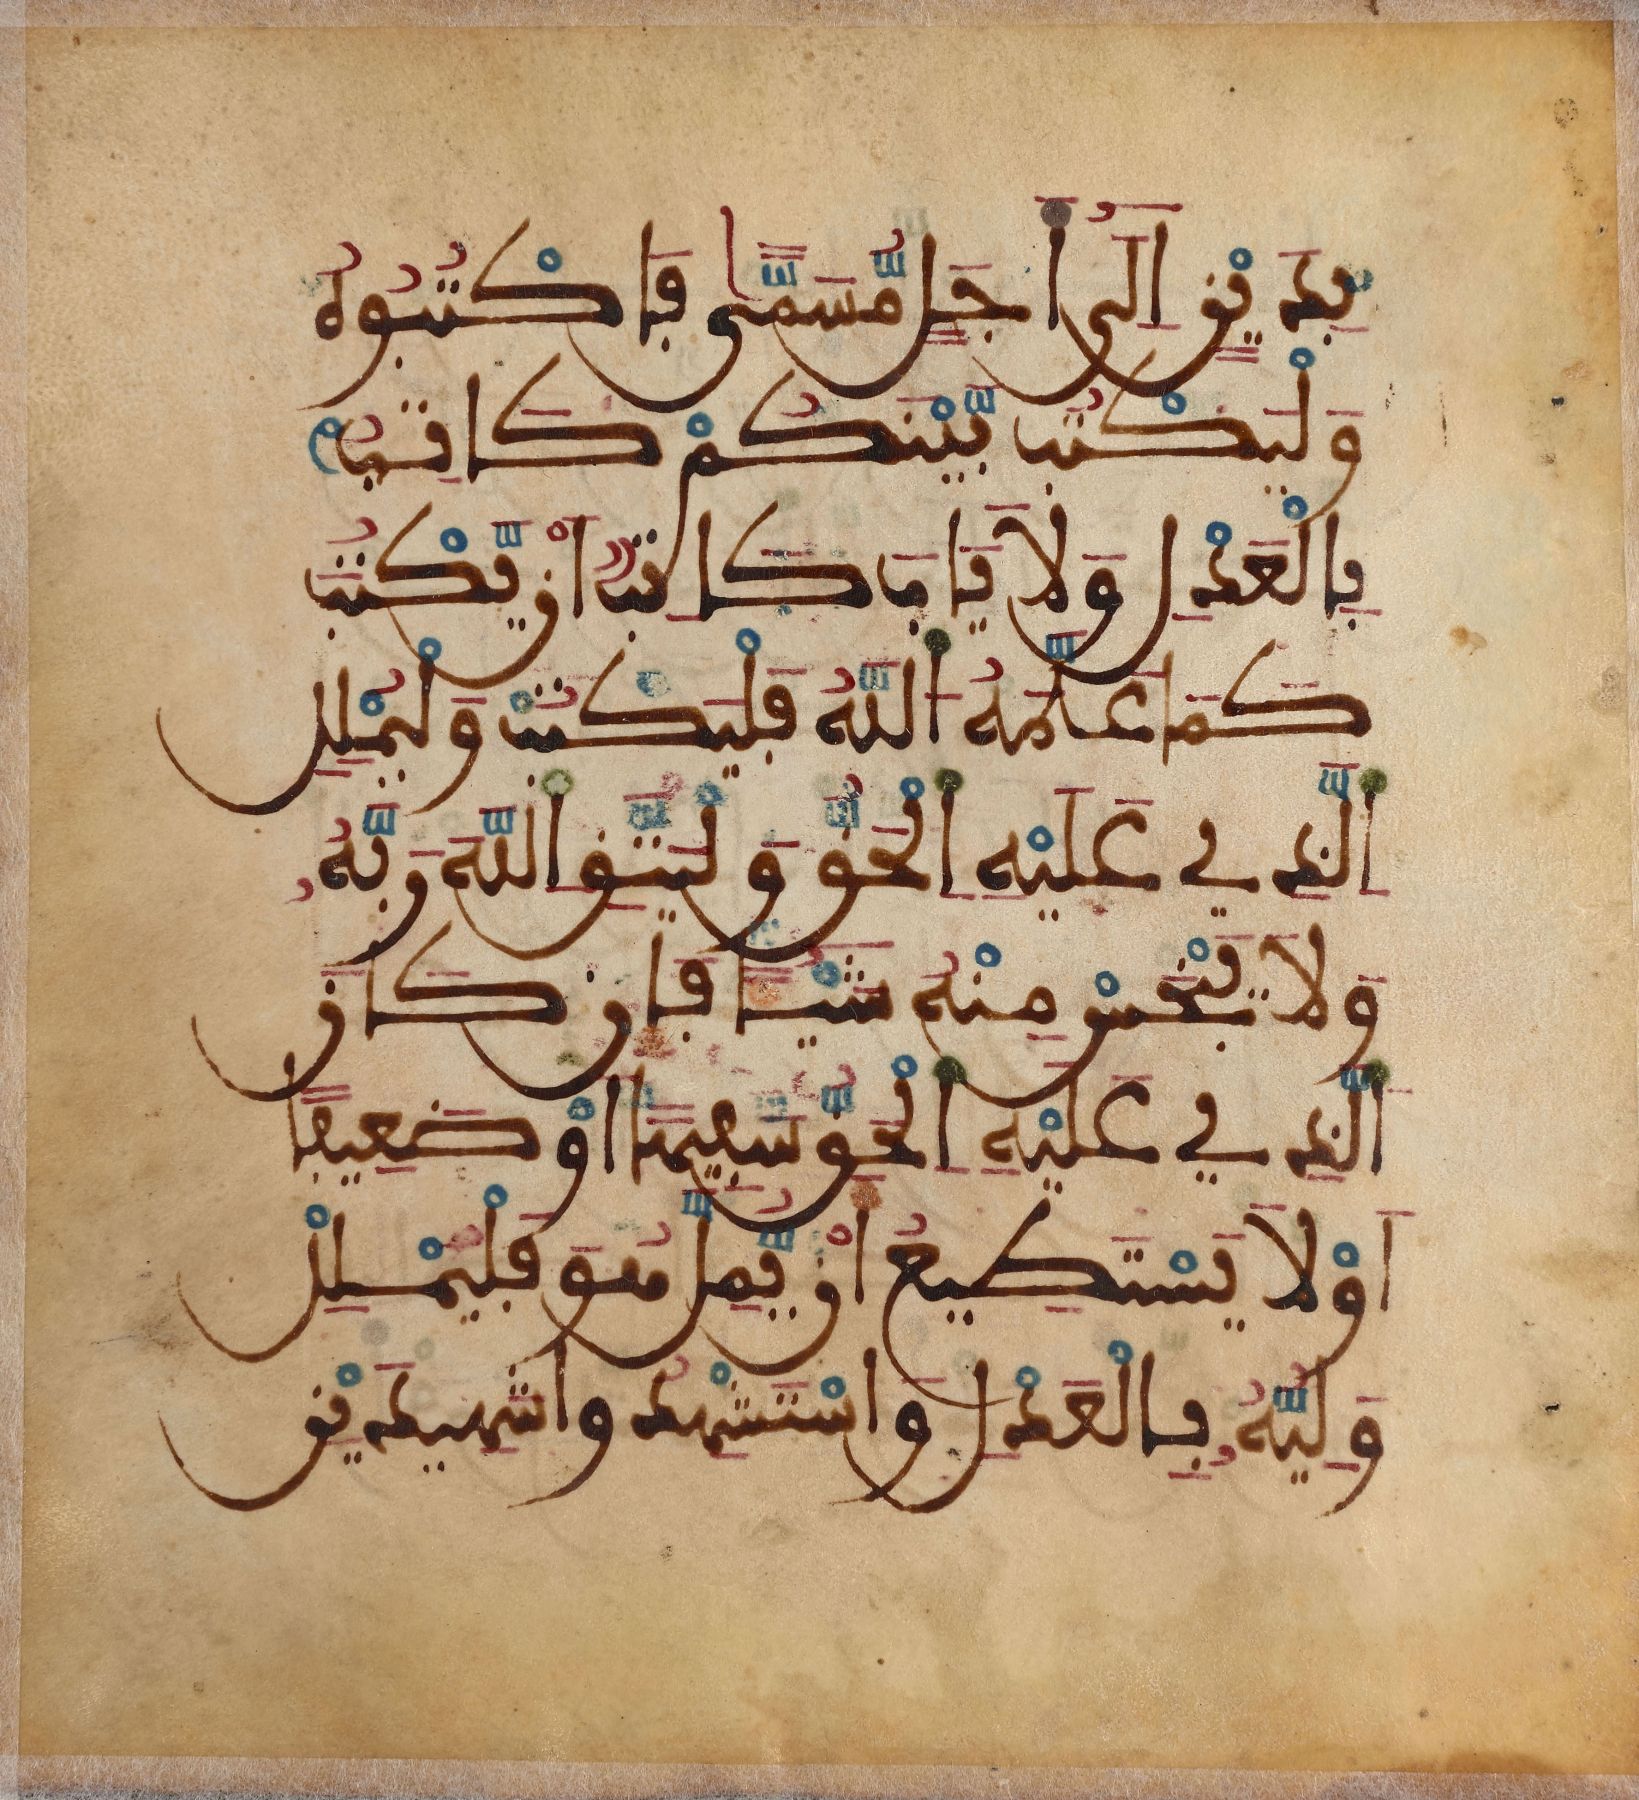 بِدَيْنٍ إِلَىٰ أَجَلٍ مُّسَمًّى فَاكْتُبُوهُ
وَلْيَكْتُب بَّيْنَكُمْ كَاتِبٌ
بِالْعَدْلِ وَلَا يَابَ كَاتِبٌ أَنْ يَّكْتُبَ
كَمَا عَلَّمَهُ اللَّهُ فَلْيَكْتُبْ وَلْيُمْلِلِ
الَّذِي عَلَيْهِ الْحَقُّ وَلْيَتَّقِ اللَّهَ رَبَّهُ
وَلَا يَبْخَسْ مِنْهُ شَيْـًٔا فَإِن كَانَ
الَّذِي عَلَيْهِ الْحَقُّ سَفِيهًا أَوْ ضَعِيفًا
أَوْ لَا يَسْتَطِيعُ أَنْ يُّمِلَّ هُوَ فَلْيُمْلِلْ
وَلِيُّهُ بِالْعَدْلِ وَاسْتَشْهِدُوا شَهِيدَيْنِ